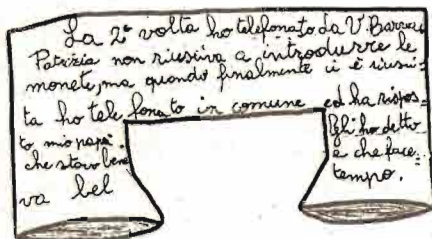 La 2ª volta ho telefonato da V. Barrai
Patrizia non riusciva a introdurre le
monete, ma quando finalmente ci è riusci=
ta ho telefonato in comune ed ha rispos=
to mio papà. Gli ho detto
che stavo bene e che face=
va bel tempo.